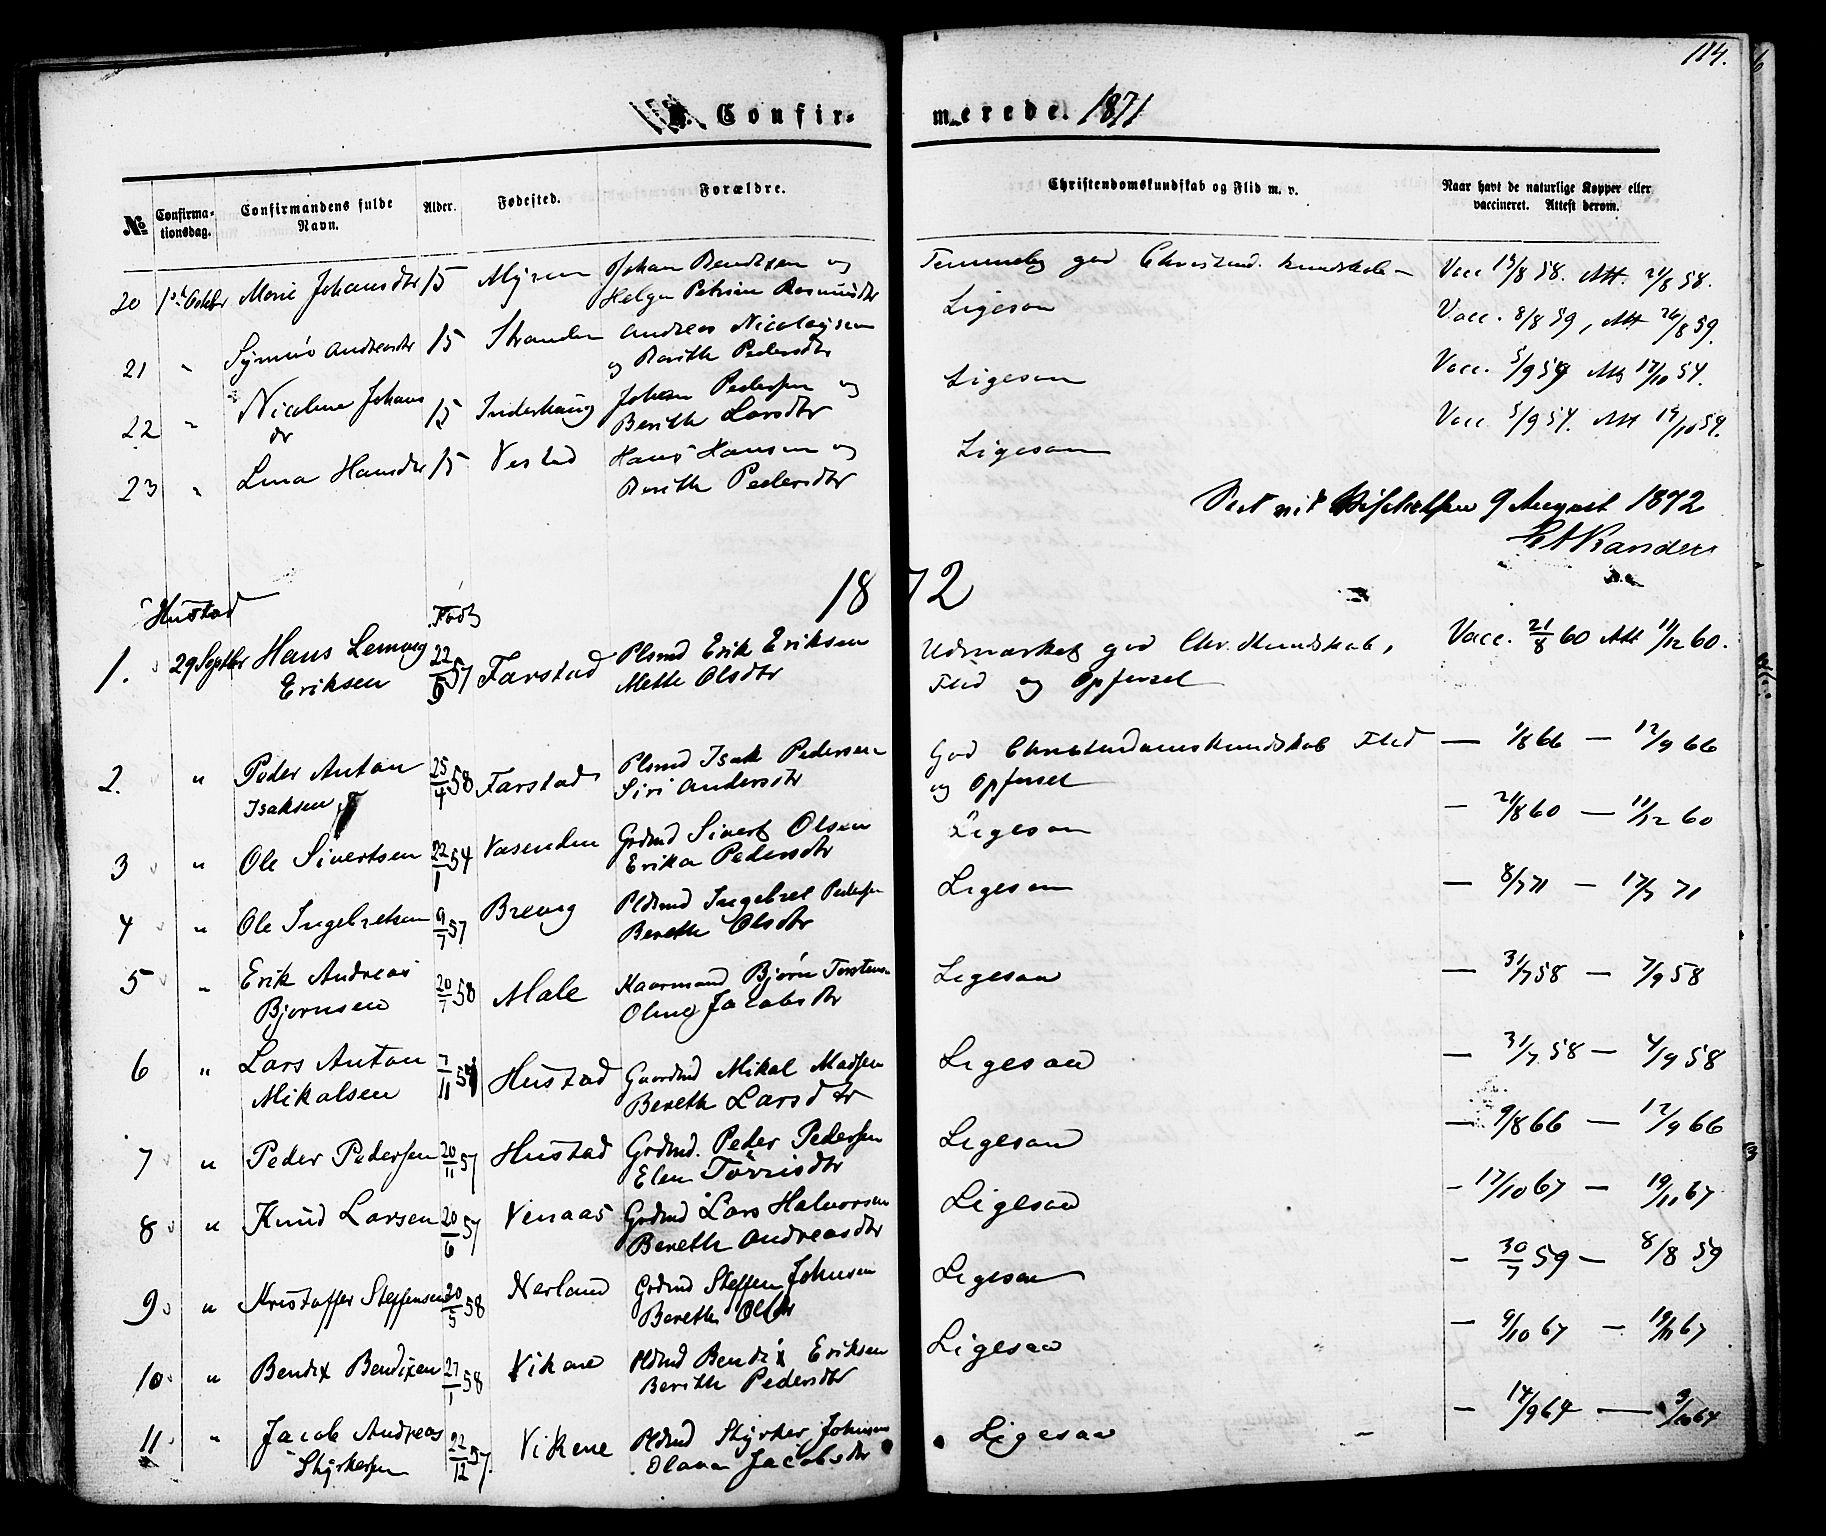 114.
Confir- merede. 1871
No | Confirma-tionsdag. | Confirmandens fulde Navn. | Alder. | Fødested. | Forældre. | Christendomskundskab og Flid m. v. | Naar havt de naturlige Kopper eller vaccineret. Attest derom.
20 | 1ste Octbr | Marie Johansdtr | 15 | Myren | Johan Bendixen og Helga Petrine Rasmusdtr | Temmelig god Christend. kundskab | Vacc 13/8 58. Att. 21/8 58.
21 | " | Andreasdtr | 15 | Stranden | Andreas Nicolaysen og Berith Pedersdtr | Ligesaa | Vacc. 8/8 59, Att 26/8 59.
22 | " | Nicoline Johansdr | 15 | Inderhaug | Johan Pedersen og Berith Larsdtr | Ligesaa | Vacc. 5/9 57 Att 17/10 57.
23 | " | Lina Hansdtr | 15 | Vestad | Hans Hansen og Berith Pedersdtr | Ligesaa | Vacc 5/9 57. Att 17/10 57.
Seet ved Visitatsen 9 August 1872
1872
Hustad
Født
1. | 29 Septbr | Hans Lemvig Eriksen | 22/9 57 | Farstad | Plsmd Erik Eriksen Mette Olsdtr | Udmærket god Chr. Kundskab, Flid og Opførsel | Vacc. 21/8 60 Att 11/12 60.
2. | " | Peder Anton Isaksen | 25/4 58 | Farstad | Plsmd Isak Pedersen Siri Andersdtr | God Christendomskundskab Flid og Opførsel | — 1/8 66 — 12/9 66
3 | " | Ole Sivertsen | 22/1 54 | Vasenden | Grdmd Sivert Olsen Erika Pedersdtr | Ligesaa | — 21/8 60 — 11/12 60
4 | " | Ole Ingebretsen | 9/7 57 | Brevig | Pldsmd Ingebret Pedersen Bereth Olsdtr | Ligesaa | — 8/7 71 — 17/7 71
5 | " | Erik Andreas Bjørnsen | 20/7 58 | Male | Kaarmand Bjørn Torstens. Oline Jacobsdtr | Ligesaa | — 31/7 58 — 7/9 58
6 | " | Lars Anton Mikalsen | 7/11 57 | Hustad | Gaardmd Mikal Madsen Bereth Larsdtr | Ligesaa | — 31/7 58 — 4/9 58
7 | " | Peder Pedersen | 20/11 57 | Hustad | Grdmd. Peder Pedersen Elen Torrisdtr | Ligesaa | — 9/8 66 — 12/9 66
8 | " | Knud Larsen | 20/6 57 | Venaas | Grdmd Lars Halvorsen Bereth Andreasdtr | Ligesaa | — 17/10 67 — 19/10 67
9 | " | Kristoffer Steffensen | 20/5 58 | Nerland | Grdmd Steffen Johnsen Bereth Olsdtr | Ligesaa | — 30/7 59 — 8/8 59
10 | " | Bendix Bendixen | 27/1 58 | Vikene | Pldsmd Bendix Eriksen Berith Pedersdtr | Ligesaa | — 9/10 67 — 19/10 67
11 | " | Jacob Andreas Styrkersen | 22/12 57. | Vikene | Pldsmd Styrker Johnsen Olava Jacobsdtr | Ligesaa | — 14/9 64 — 3/10 64